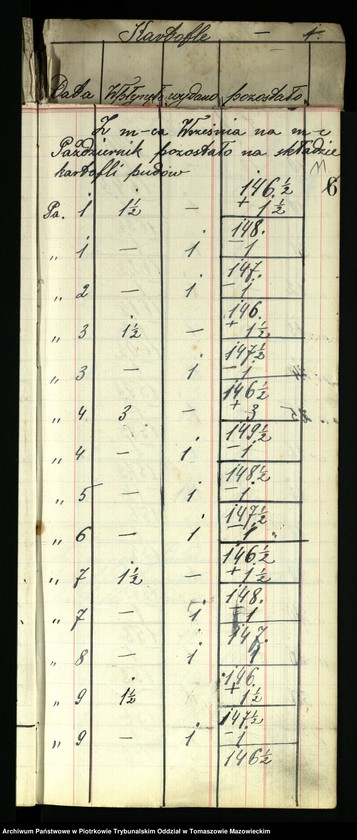 Kartofle — 1.
Data Wpłynęło wydano pozostało
Z m-ca Września na m-c
Październik pozostało na składzie
kartofli pudów
6
146 ½
Pa. 1 1½ — + 1 ½
148.
„ 1 — 1 — 1
147.
„ 2 — 1 — 1
146.
„ 3 1½ — + 1½
147½
„ 3 — 1 — 1
146½
„ 4 3 — + 3
149½
„ 4 — 1 — 1
148½
„ 5 — 1 — 1
147½
„ 6 — 1 — 1
146½
„ 7 1½ — + 1½
148.
„ 7 — 1 — 1
147.
„ 8 — 1 1
146.
„ 9 1½ + 1½
147½
„ 9 — 1 — 1
146½
Archiwum Państwowe w Piotrkowie Trybunalskim Oddział w Tomaszowie Mazowieckim